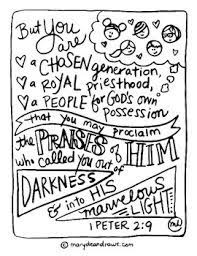 But You
are
a CHOSEN generation,
a ROYAL priesthood,
a PEOPLE for GOD'S own
Possession
that you may proclaim
the PRAISES of HIM
who called you out of
DARKNESS
& into HIS
marvelous
LIGHT
1 PETER 2:9
© marydeandraws.com